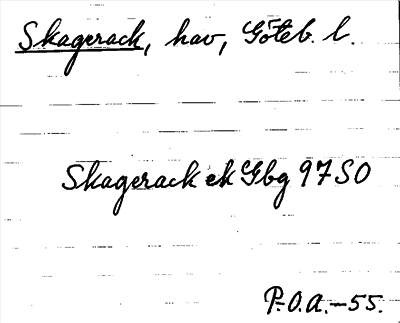 Skagerack, hav, Göteb. l.
Skagerack ek Gbg 97 SO
P.O.A.-55.